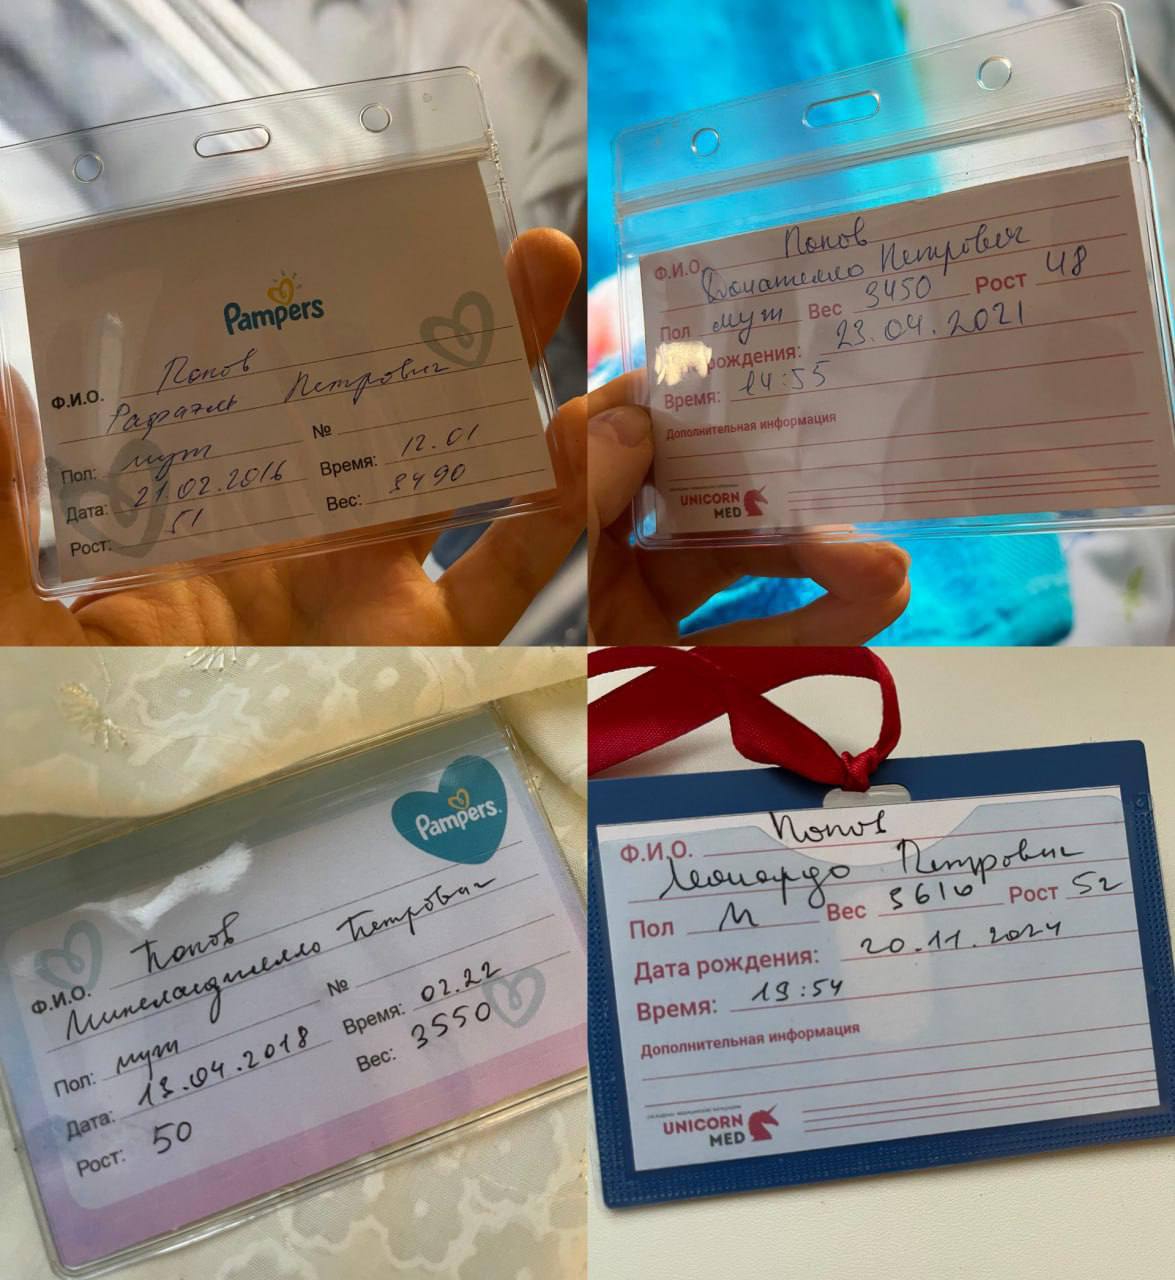 Pampers
Попов
Ф.И.О. Рафаэль Петрович
Пол: муж №
Дата: 21.02.2016 Время: 12.01
Рост: 51 Вес: 3490
Попов
Ф.И.О. Донателло Петрович
Пол муж Вес 3450 Рост 48
рождения: 23.04.2021
Время: 14:55
Дополнительная информация
UNICORN
MED
Pampers.
Ф.И.О. Попов
Микеланджелло Петрович
Пол: муж №
Дата: 13.04.2018 Время: 02.22
Рост: 50 Вес: 3550
Ф.И.О. Попов
Леонардо Петрович
Пол М Вес 3610 Рост 52
Дата рождения: 20.11.2024
Время: 19:54
Дополнительная информация
UNICORN
MED